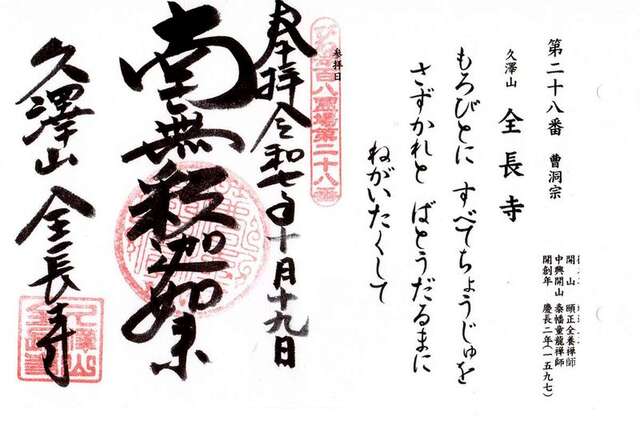 第二十八番 曹洞宗
久澤山 全長寺
開山 頤正全養禅師
中興開山 泰幡重龍禅師
開創年 慶長二年(一五九七)
もろびとに すべてちょうじゅを
さずかれと ばとうだるまに
ねがいたくして
参拝日
百八霊場第二十八
奉拝 令和七年十月十九日
南無釈迦如来
久澤山 全長寺